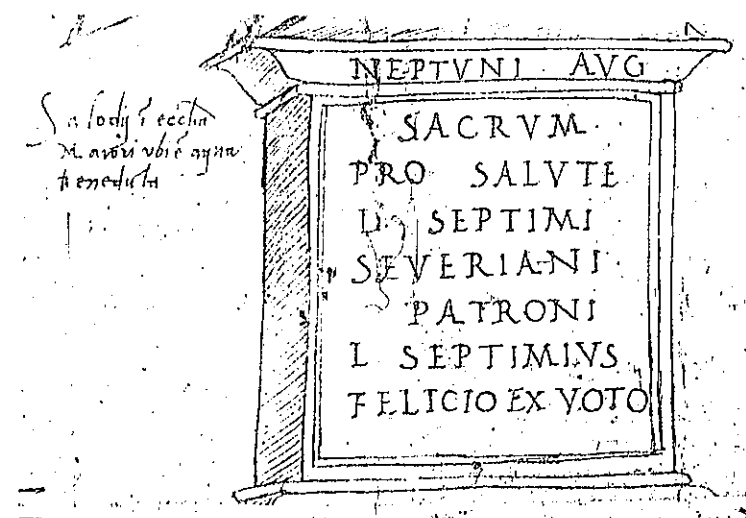 A lodij ī ecclīa
Maiori vbi ē aqua
benedicta
NEPTVNI AVG
SACRVM
PRO SALVTE
L SEPTIMI
SEVERIANI
PATRONI
L SEPTIMIVS
FELICIO EX VOTO